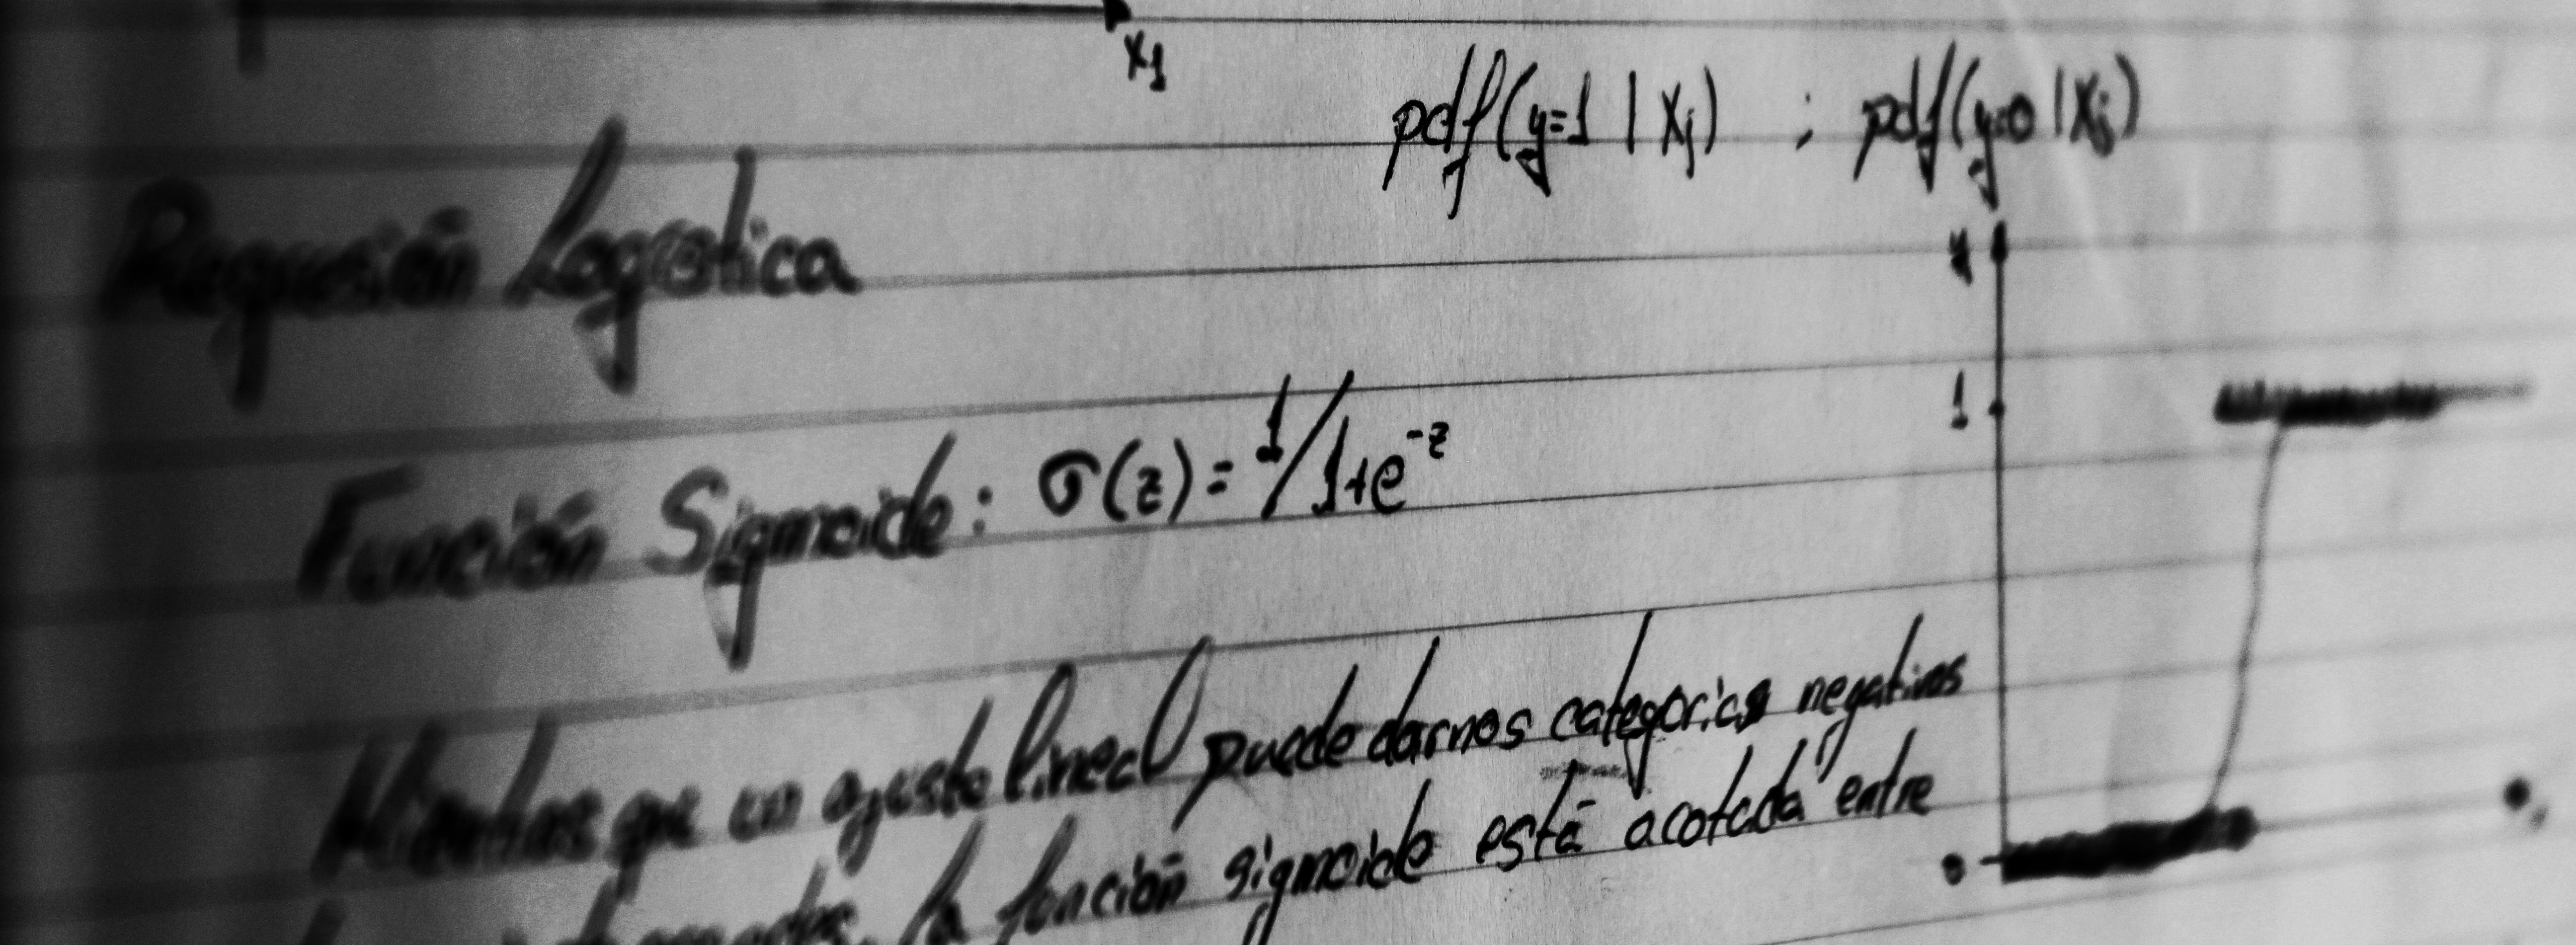 x₁
pdf(y=1 | xⱼ) ; pdf(y=0 | xⱼ)
Regresión Logística
y
1
Función Sigmoide: σ(z) = 1/1+e⁻ᶻ
Mientras que un ajuste lineal puede darnos categorias negativas
la función sigmoide está acotada entre
0